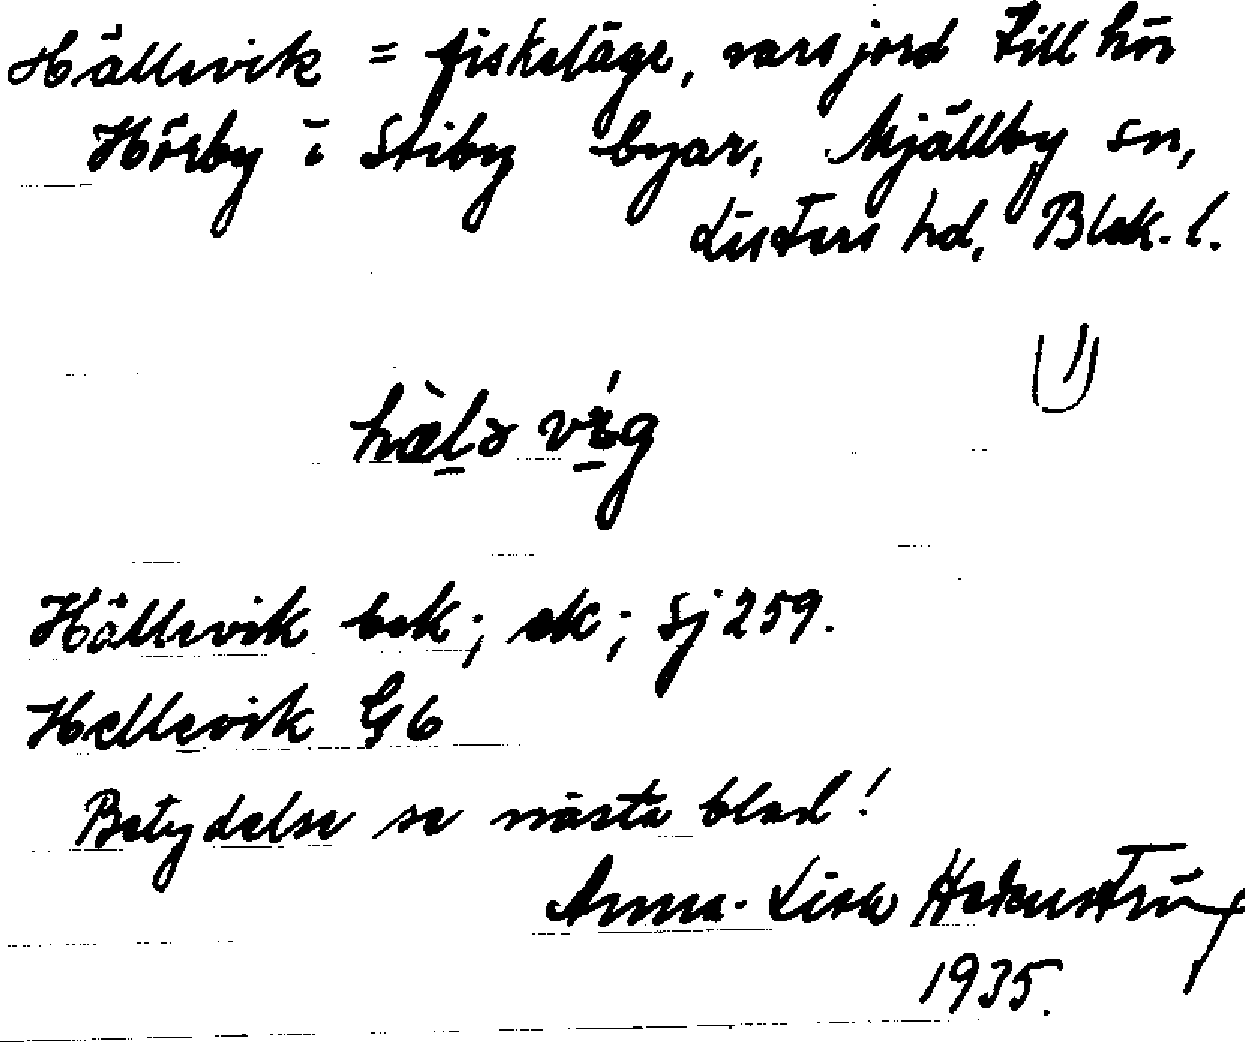 Hällevik = fiskeläge, vars jord till hör
Hörby i Stiby byar, Mjällby sn,
Listers hd, Blek. l.
U
hælə vig
Hällevik bek; ek; Sj 259.
Hellevik G6
Betydelse se nästa blad!
Anna-Lisa
1935.